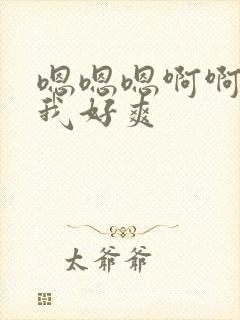 嗯嗯嗯啊啊
我好爽
太爷爷